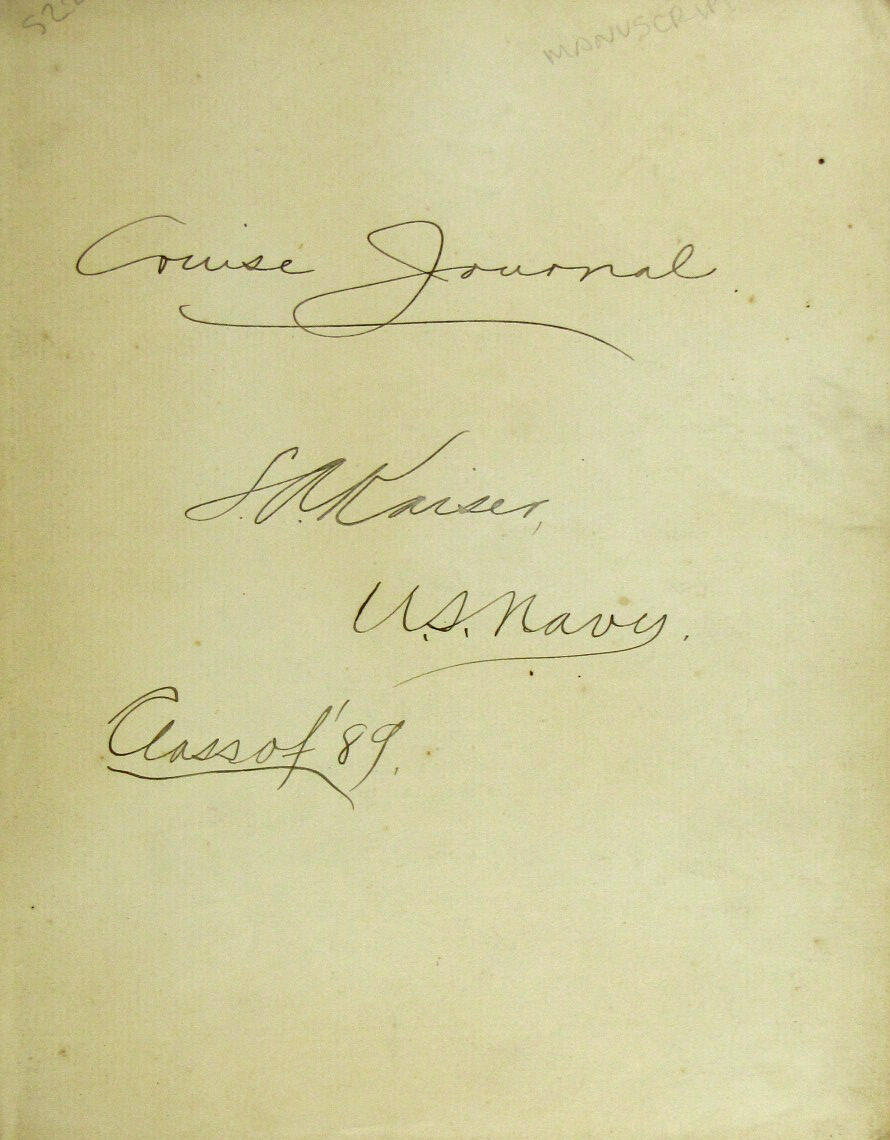 MANUSCRIPT
Cruise Journal.
S.A. Kaiser,
U.S. Navy.
Class of '89.